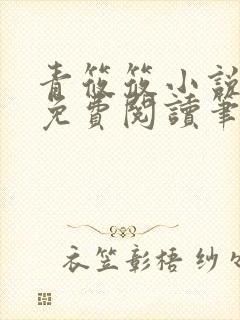 青筱筱小說
免費閱讀筆
衣笠彰梧 纱